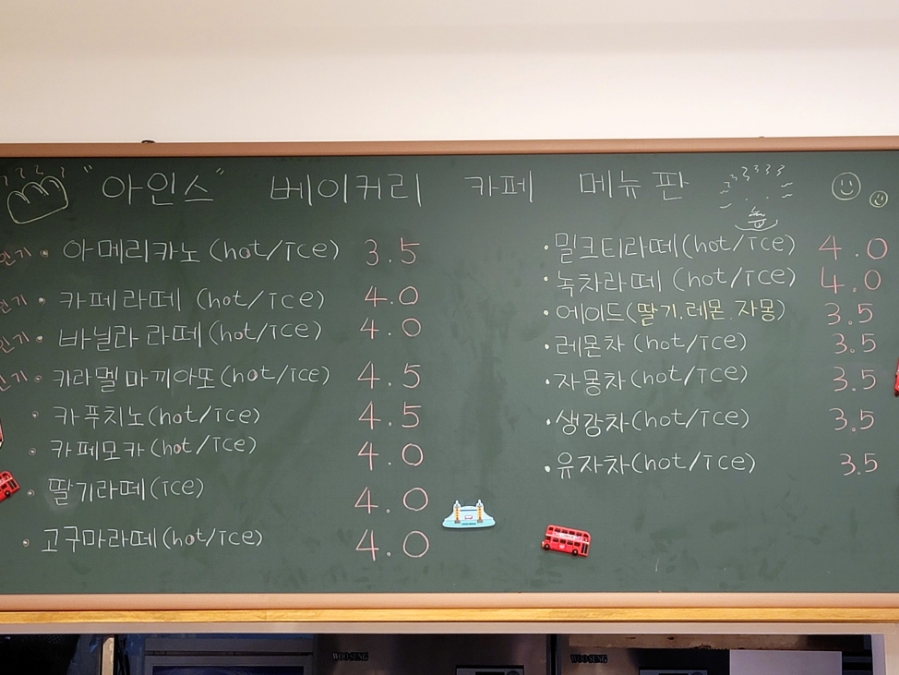 "아인스" 베이커리 카페 메뉴판
인기 · 아메리카노 (hot/Ice) 3.5
인기 · 카페라떼 (hot/Ice) 4.0
인기 · 바닐라 라떼 (hot/Ice) 4.0
인기 · 카라멜 마끼아또 (hot/Ice) 4.5
· 카푸치노 (hot/Ice) 4.5
· 카페모카 (hot/Ice) 4.0
· 딸기라떼 (Ice) 4.0
· 고구마라떼 (hot/Ice) 4.0
· 밀크티라떼 (hot/Ice) 4.0
· 녹차라떼 (hot/Ice) 4.0
· 에이드 (딸기.레몬.자몽) 3.5
· 레몬차 (hot/Ice) 3.5
· 자몽차 (hot/Ice) 3.5
· 생강차 (hot/Ice) 3.5
· 유자차 (hot/Ice) 3.5